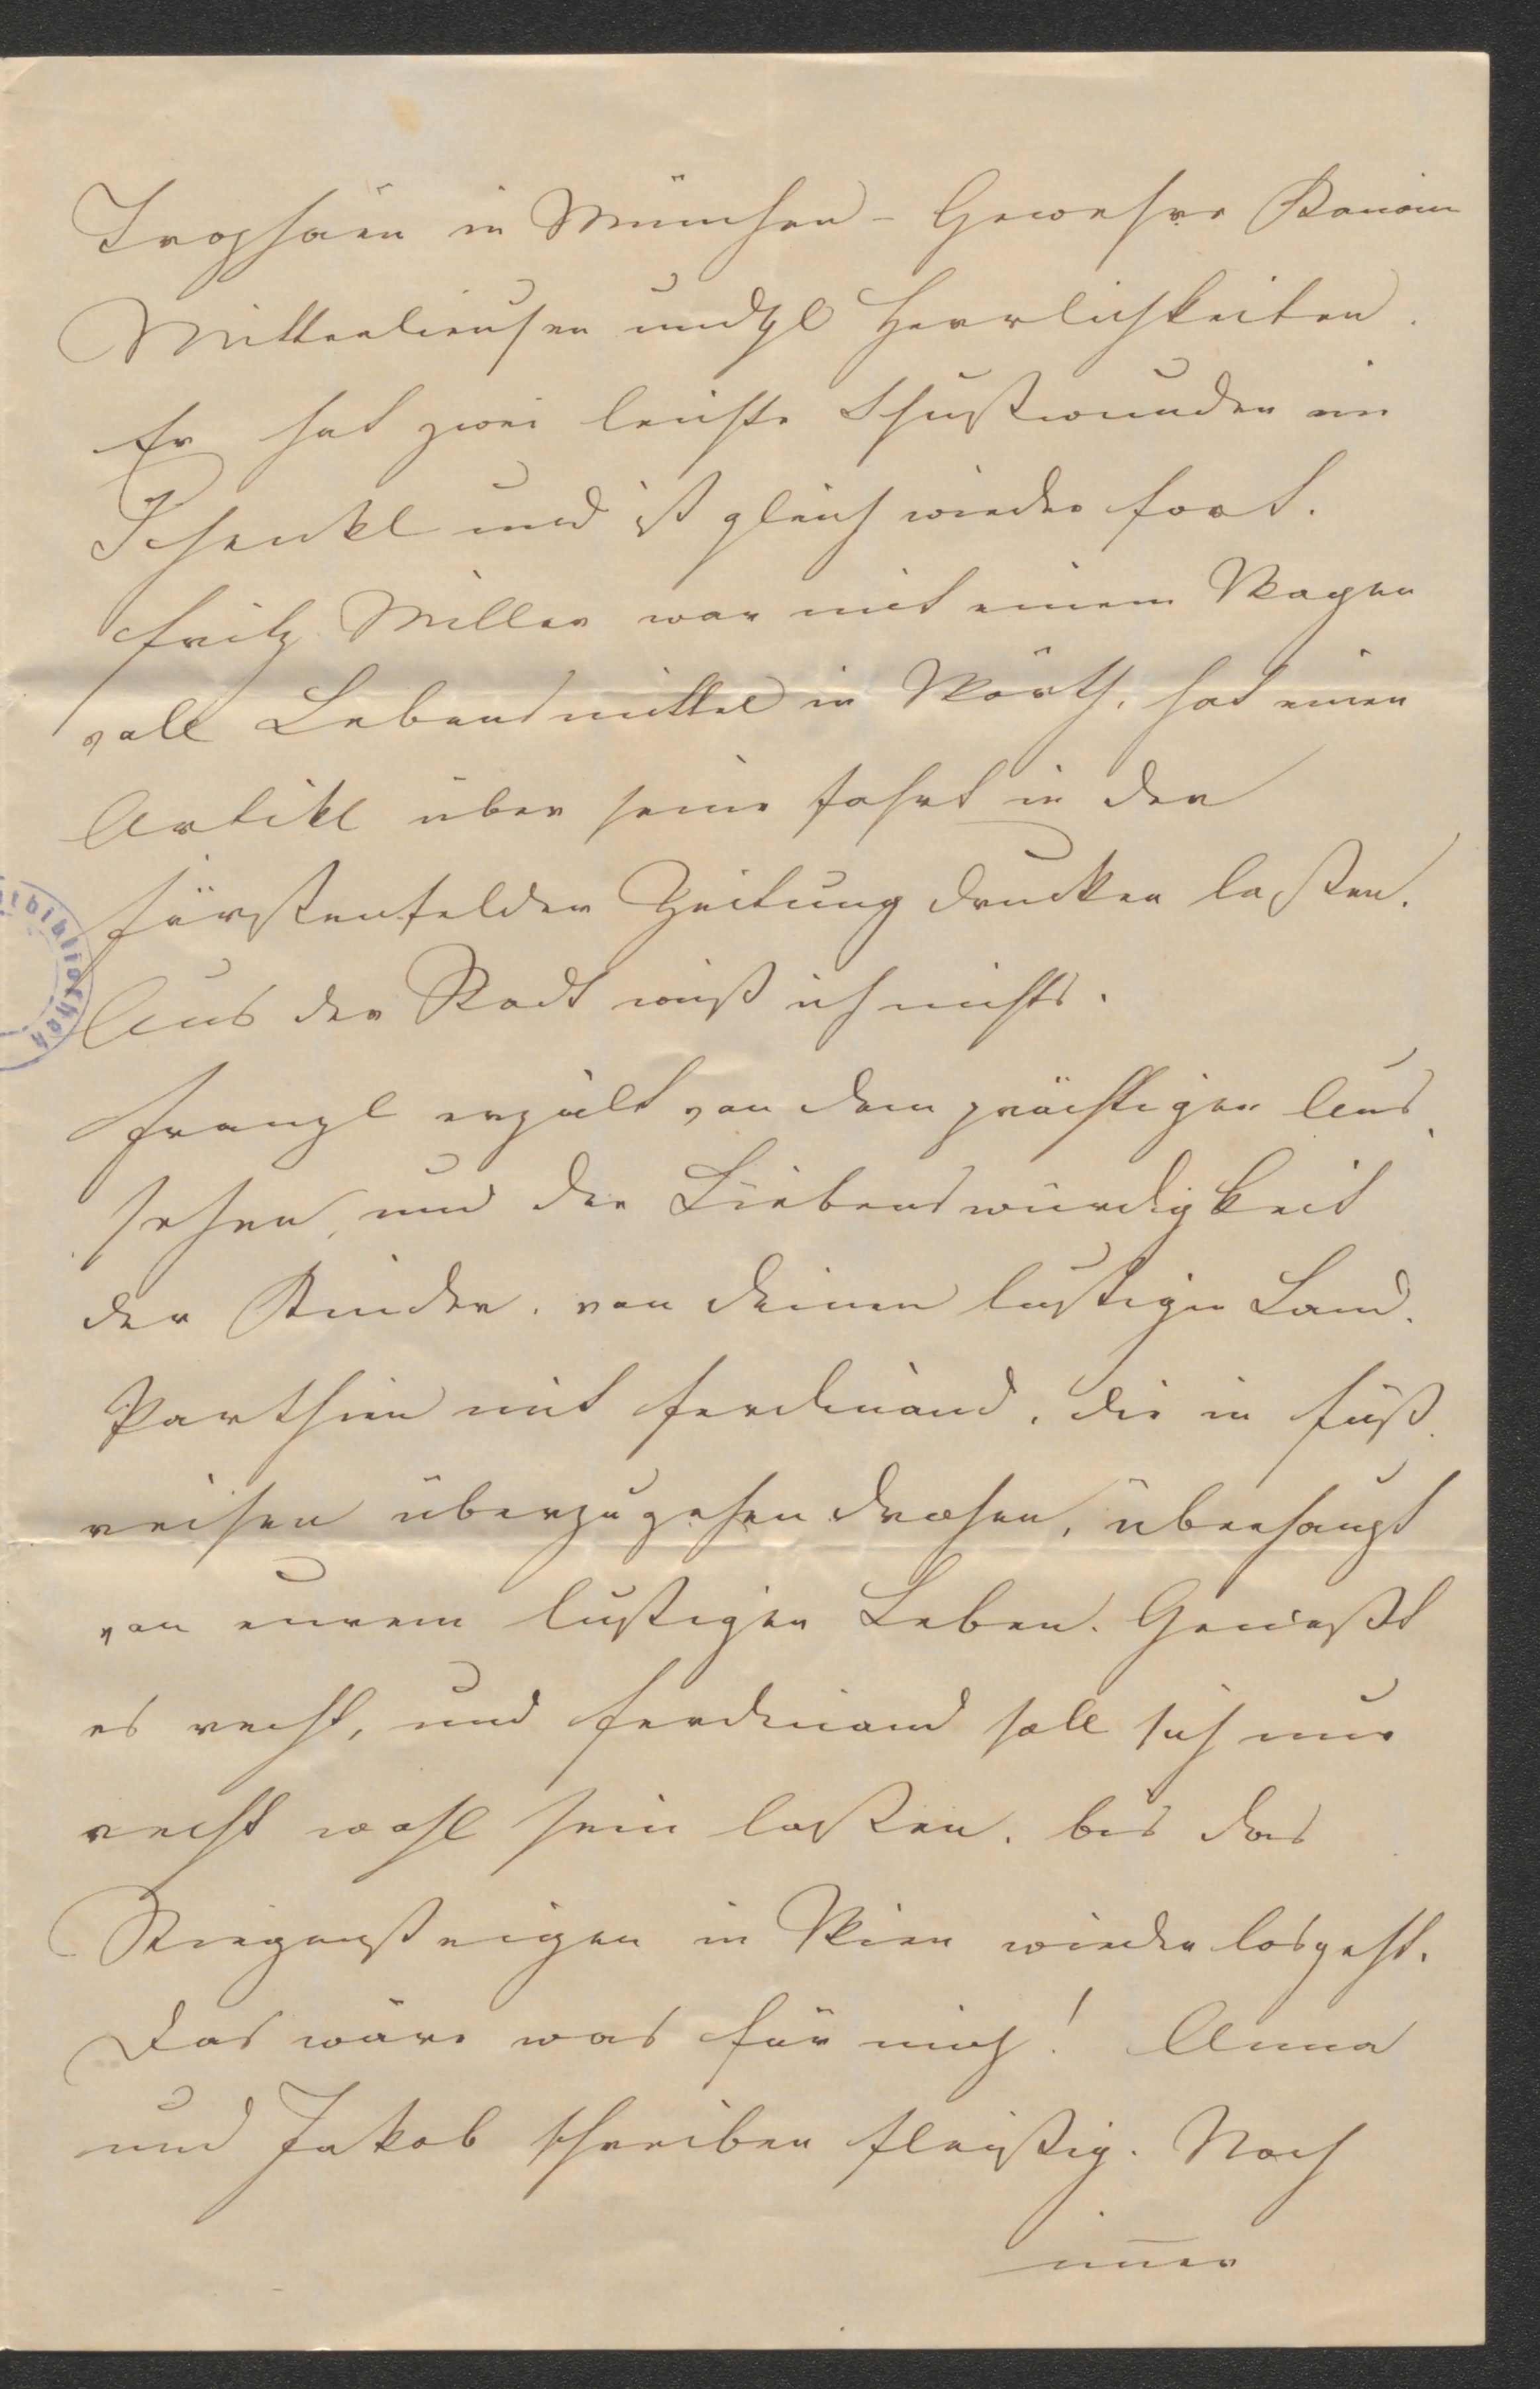 Trophäen in München – Gewehre Kanonen
Mittralieusen undgl Herrlichkeiten.
Er hat zwei leichte Schußwunden im
Schenkl und ist gleich wieder fort.
Fritz Miller war mit einem Wagen
voll Lebensmittel in Wörth, hat einen
Artikl über seine Fahrt in der
Fürstenfelder Zeitung drucken laßen.
Aus der Stadt weiß ich nichts.
Franzl erzält von dem prächtigen Aus
sehen, und der Liebenswürdigkeit
der Kinder, von deinen lustigen Land.
Parthien mit Ferdinand, die in Fuß
reisen überzugehen drohen, überhaupt
von eurem lustigen Leben. Genießt
es recht, und Ferdinand soll sich nur
recht wohl sein laßen, bis das
Stiegensteigen in Wien wieder losgeht.
Das wäre was für mich! Anna
und Jakob schreiben fleißig. Noch
im̅er